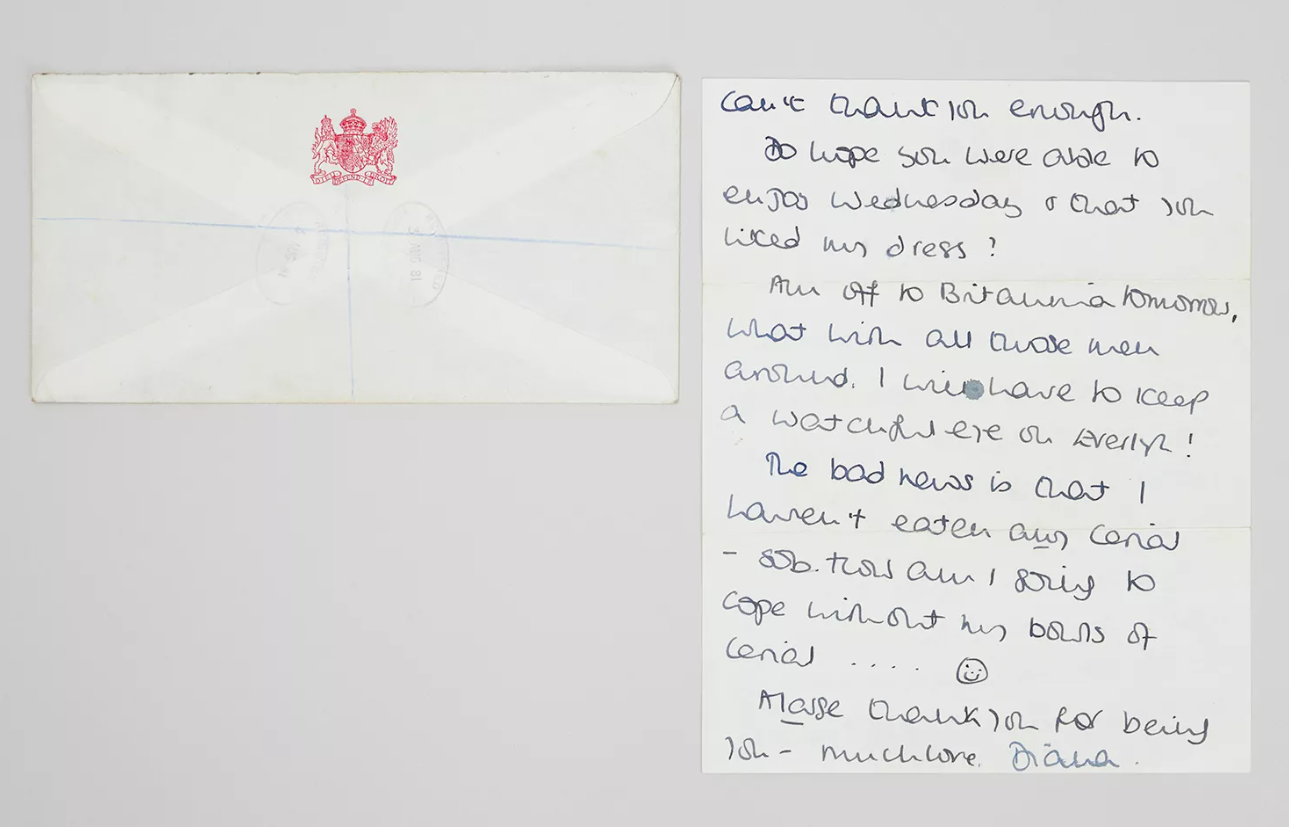 DIEU DEFEND LE ROY
can't thank you enough.
Do hope you were able to
enjoy Wednesday & that you
liked my dress?
Am off to Britannia tomorrow,
what with all those men
around. I will have to keep
a watchful eye on Everlyn!
The bad news is that I
haven't eaten any cerial
- sob. How am I going to
cope without my bowls of
cerial ....
A large thank you for being
you - much love. Diana.